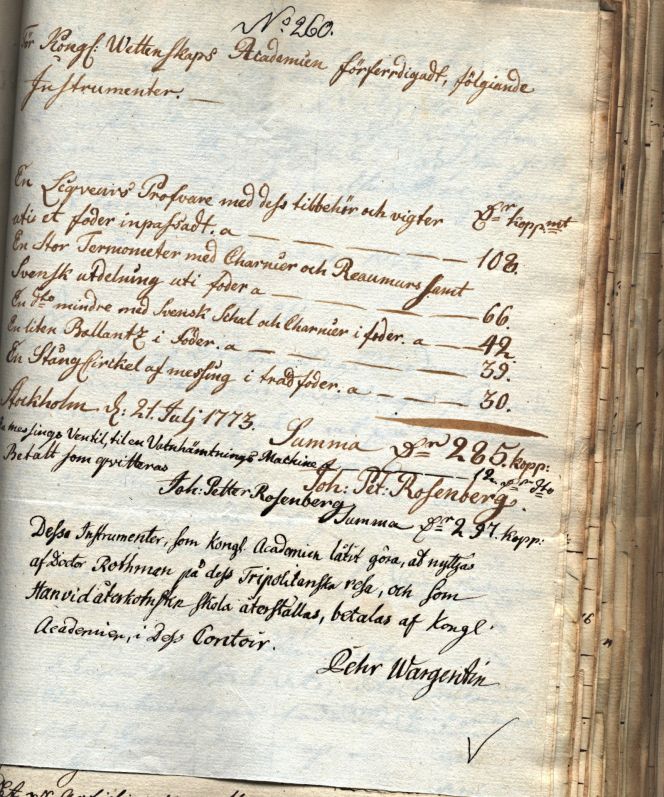 No 260.
För Kongl: Wettenskaps Academien förferrdigadt, fölgiande
Instrumenter. —
Dr kopp mt
En Liqveurs Profvare med dess tilbehör och vigter
uti et foder inpassadt. a — — — — — 108.
En Stor Termometer med Charnier och Reaumurs samt
Svensk utdelning uti foder a — — — — — 66.
En dto mindre med Svensk Schal och Charnier i foder. a — 42.
En liten Ballantz i foder. a — — — — — 39.
En Stång Circkel af messing i träd foder. a — — — 30.
Stockholm d: 21 Julj 1773. Summa Dr 285. kopp:
messings Ventil, til en Vatnhämtnings Machine 12 dto
Betalt som qvitteras Joh: Pet: Rosenberg.
Joh: Petter Rosenberg
Summa Dr 297. kopp:
Dessa Instrumenter, som Kongl. Academien låtit göra, at nyttjas
af Doctor Rothman på dess Tripolitanska resa, och som
Han vid återkomsten skola återställas, betalas af Kongl.
Academien, i Dess Contoir.
Pehr Wargentin